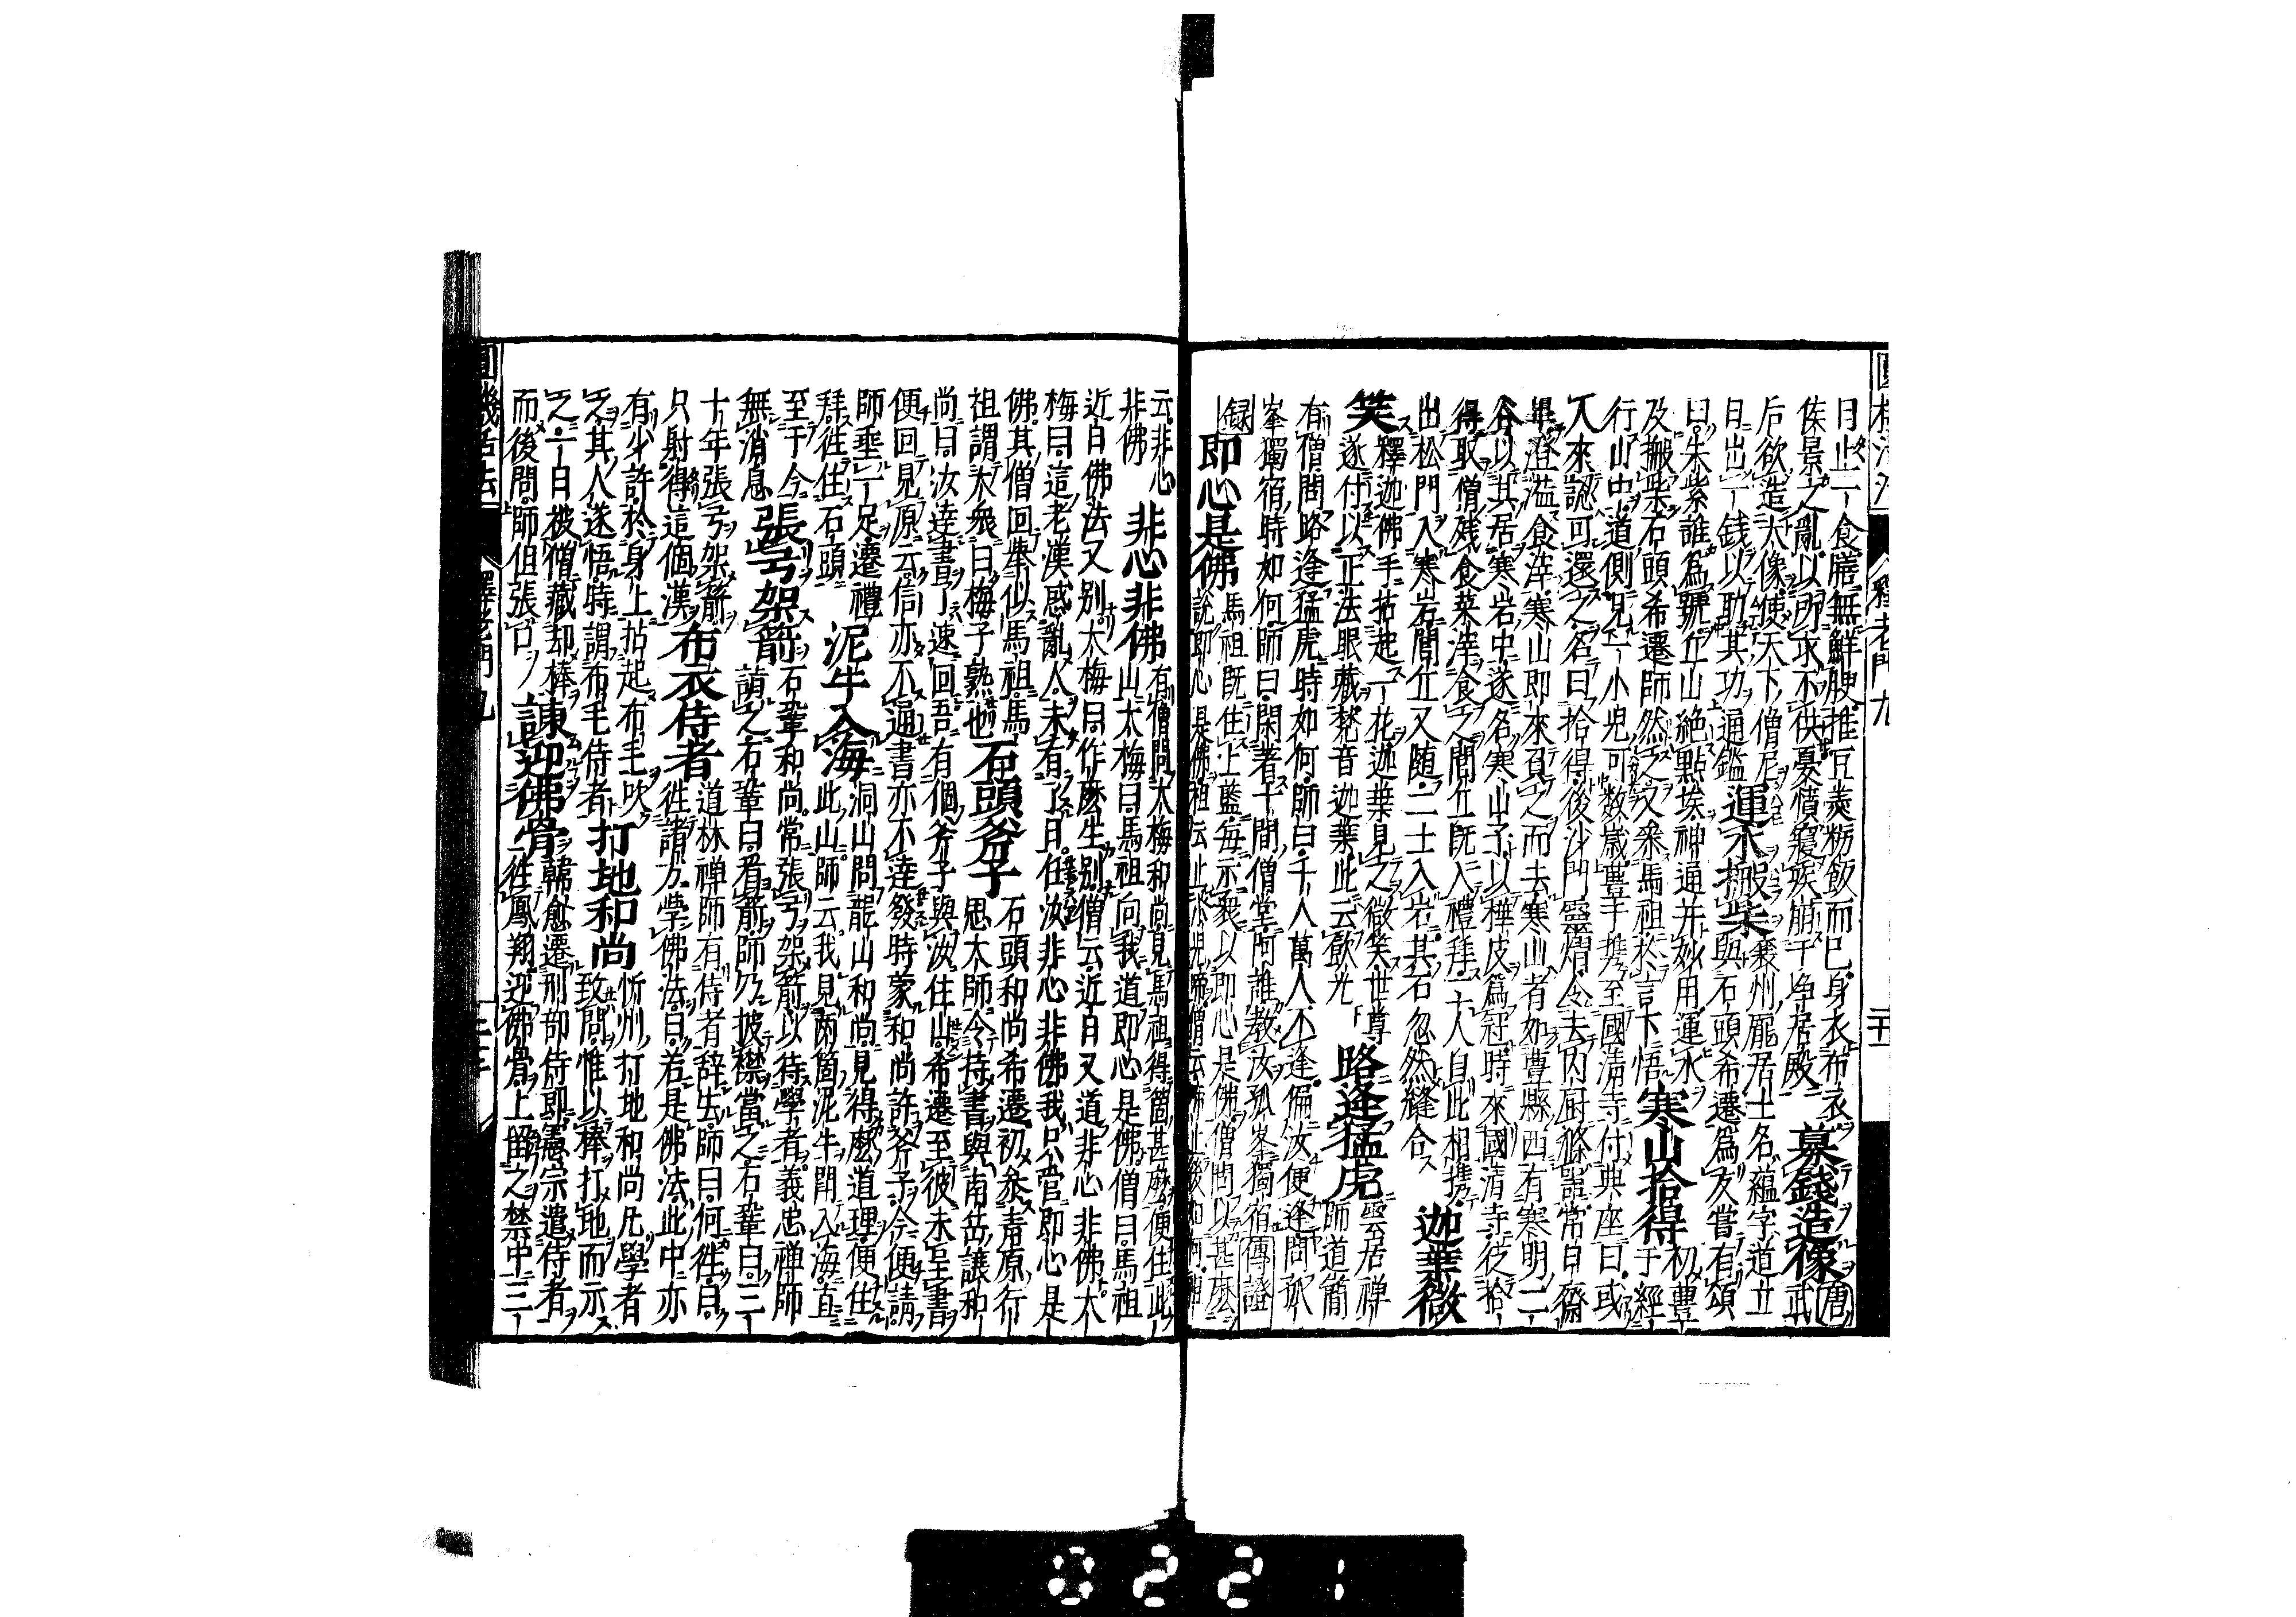 日止一食膳無鮮腴推豆羹糲飯而已身衣布衣募錢造像唐武
侯景之亂以所求不供憂憤寢疾崩于净居殿
后欲造大像使天下僧尼
日出一錢以助其功通鑑運水搬柴襄州龐居士名蘊字道玄
與石頭希遷爲友嘗有頌
曰朱紫誰爲號丘山絶點埃神通并妙用運水
及搬柴石頭希遷師然之又參馬祖於言下悟寒山拾得初豊干經
行山中道側見一小兒可數歳豊干携至國清寺付典座曰或
人來認可還之名曰拾得後沙門靈熠令去内厨滌器常日齋
畢澄濾食滓寒山即來負之而去寒山者如豊縣西有寒明二
谷以其居寒岩中遂名寒山子以樺皮爲冠時來國清寺從拾
得取僧残食菜滓食之閭丘既入禮拜二人自此相携
出松門入寒岩閭丘又随二士入岩其石忽然縫合迦葉微
笑釋迦佛手拈起一花迦葉見之微笑世尊
遂付以正法眼藏梵音迦葉此云飲光路逢猛虎雲居禅
師道簡
有僧問路逢猛虎時如何師曰千人萬人不逢偏汝便逢問孤
峯獨宿時如何師曰閑著十間僧堂阿誰教汝孤峯獨宿傳證
録即心是佛馬祖既住上藍毎示衆以即心是佛僧問以甚麼
説即心是佛祖云止
云非心有僧問大梅和尚見馬祖得箇甚麼便住此
非佛非心非佛山大梅曰馬祖向我道即心是佛僧曰馬祖
近日佛法又別大梅曰作麼生別僧云近日又道非心非佛大
梅曰這老漢惑亂人未有了日任汝非心非佛我只管即心是
佛其僧回擧似馬祖馬
祖謂大衆曰梅子熟也石頭斧子石頭和尚希遷初參青原行
思大師令持書與南岳讓和
尚曰汝達書了速回吾有個斧子與汝住山希遷至彼未呈書
便回見原云信亦不通書亦不達發時蒙和尚許斧子今便請
師垂一足遷禮
拜往住石頭泥牛入海洞山問龍山和尚見得麼道理便住
此山師云我見兩箇泥牛鬪入海直
至于今
無消息張弓架箭石鞏和尚常張弓架箭以待學者義忠禅師
詣之石鞏曰看箭師乃披襟當之石鞏曰三
十年張弓架箭
只射得這個漢布衣侍者道林禅師有侍者辞去師曰何往曰
往諸方學佛法曰若是佛法此中亦
有少許於身上拈起布毛吹
之其人遂悟時謂布毛侍者打地和尚忻州打地和尚凡學者
致問惟以棒打地而示
之一日被僧藏却棒
而後問師但張口諫迎佛骨韓愈遷刑部侍郎憲宗遣侍者
往鳳翔迎佛骨上留之禁中三
0221